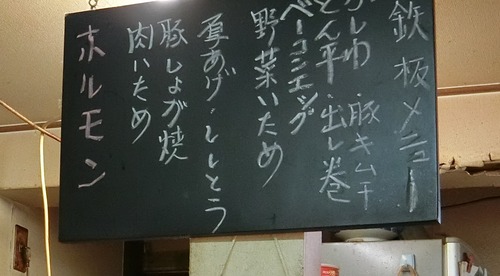 鉄板メニュー
豚キムチ
とん平・出し巻
ベーコンエッグ
野菜いため
厚あげ・ししとう
豚しょが焼
肉いため
ホルモン